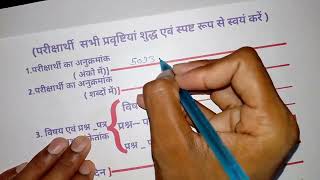 (परीक्षार्थी सभी प्रवृष्टियां शुद्ध एवं स्पष्ट रूप से स्वयं करें )
1.परीक्षार्थी का अनुक्रमांक
( अंको में)]
2.परीक्षार्थी का अनुक्रमांक
( शब्दों में)]
3. विषय एवं प्रश्न _पत्र
विष
प्रश्न– प
प्रश्न _